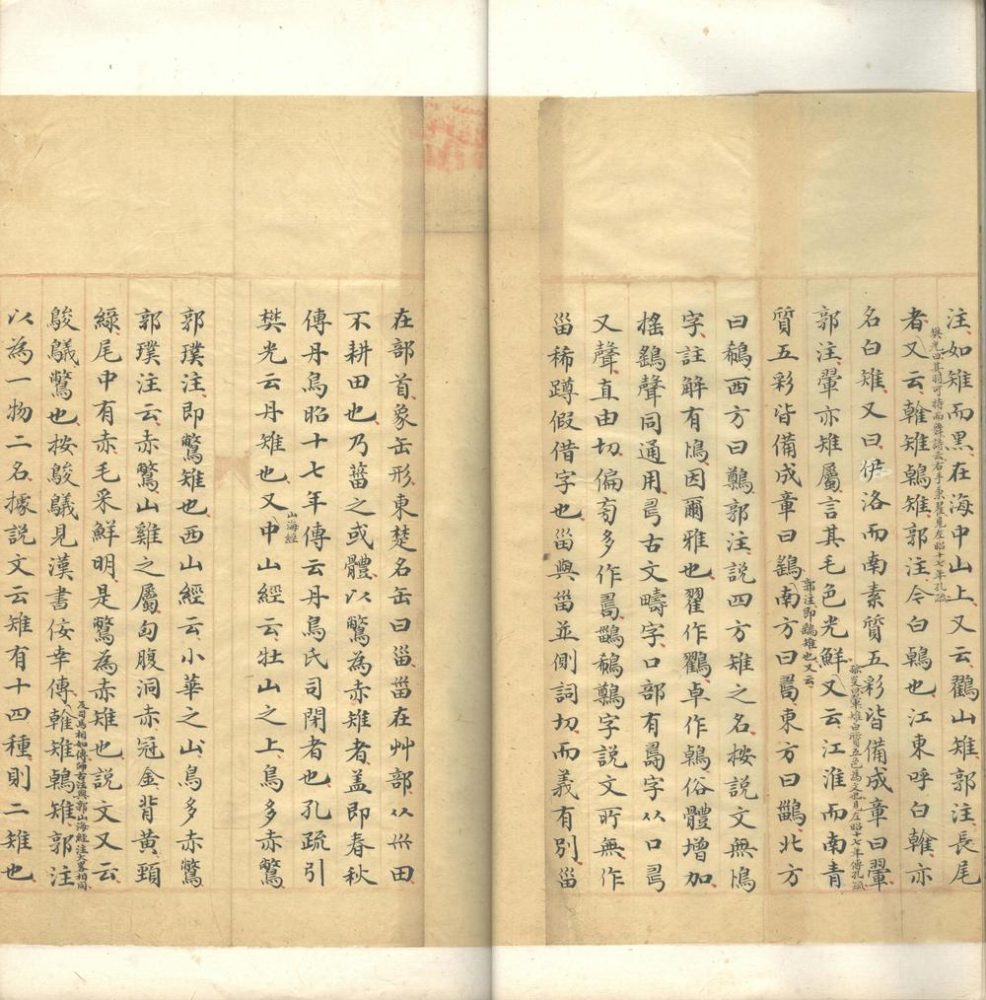 注、如雉而黑、在海中山上、又云、鸐山雉、郭注、長尾
者、又云、雗雉鵫雉、郭注、今白鵫也、江東呼白雗、亦
名白雉、又曰、伊洛而南素質五彩皆備成章曰翬、
郭注、翬亦雉屬、言其毛色光鮮、又云、江淮而南青
質五彩皆備成章曰鷂、南方曰、東方曰鶅、北方
郭注即鷂雉也又云、
曰鵗、西方曰鷷、郭注、説四方雉之名、按説文無鳪
字、註解有鳪、因爾雅也、翟作鸐、卓作鵫、俗體增加
搖鷂聲同通用、古文疇字、口部有字、从口
又聲、直由切、偏旁多作、鶅鵗鷷字説文所無、作
甾稀蹲、假借字也、甾與甾並側詞切、而義有別、甾
在部首、象缶形、東楚名缶曰甾、甾在艸部、从艸田、
不耕田也、乃菑之或體、以鷩為赤雉者、盖即春秋
傳丹鳥、昭十七年傳云、丹鳥氏司閉者也、孔疏引
樊光云、丹雉也、又中山經云、牡山之上、鳥多赤鷩、
山海經
郭璞注、即鷩雉也、西山經云、小華之山、鳥多赤鷩、
郭璞注云、赤鷩、山雞之屬、匈腹洞赤、冠金背黃、頭
綠、尾中有赤、毛采鮮明、是鷩為赤雉也、説文又云、
鵔鸃鷩也、按鵔鸃見漢書佞幸傳、雗雉鵫雉、郭注
以為一物二名、據説文云雉有十四種、則二雉也、